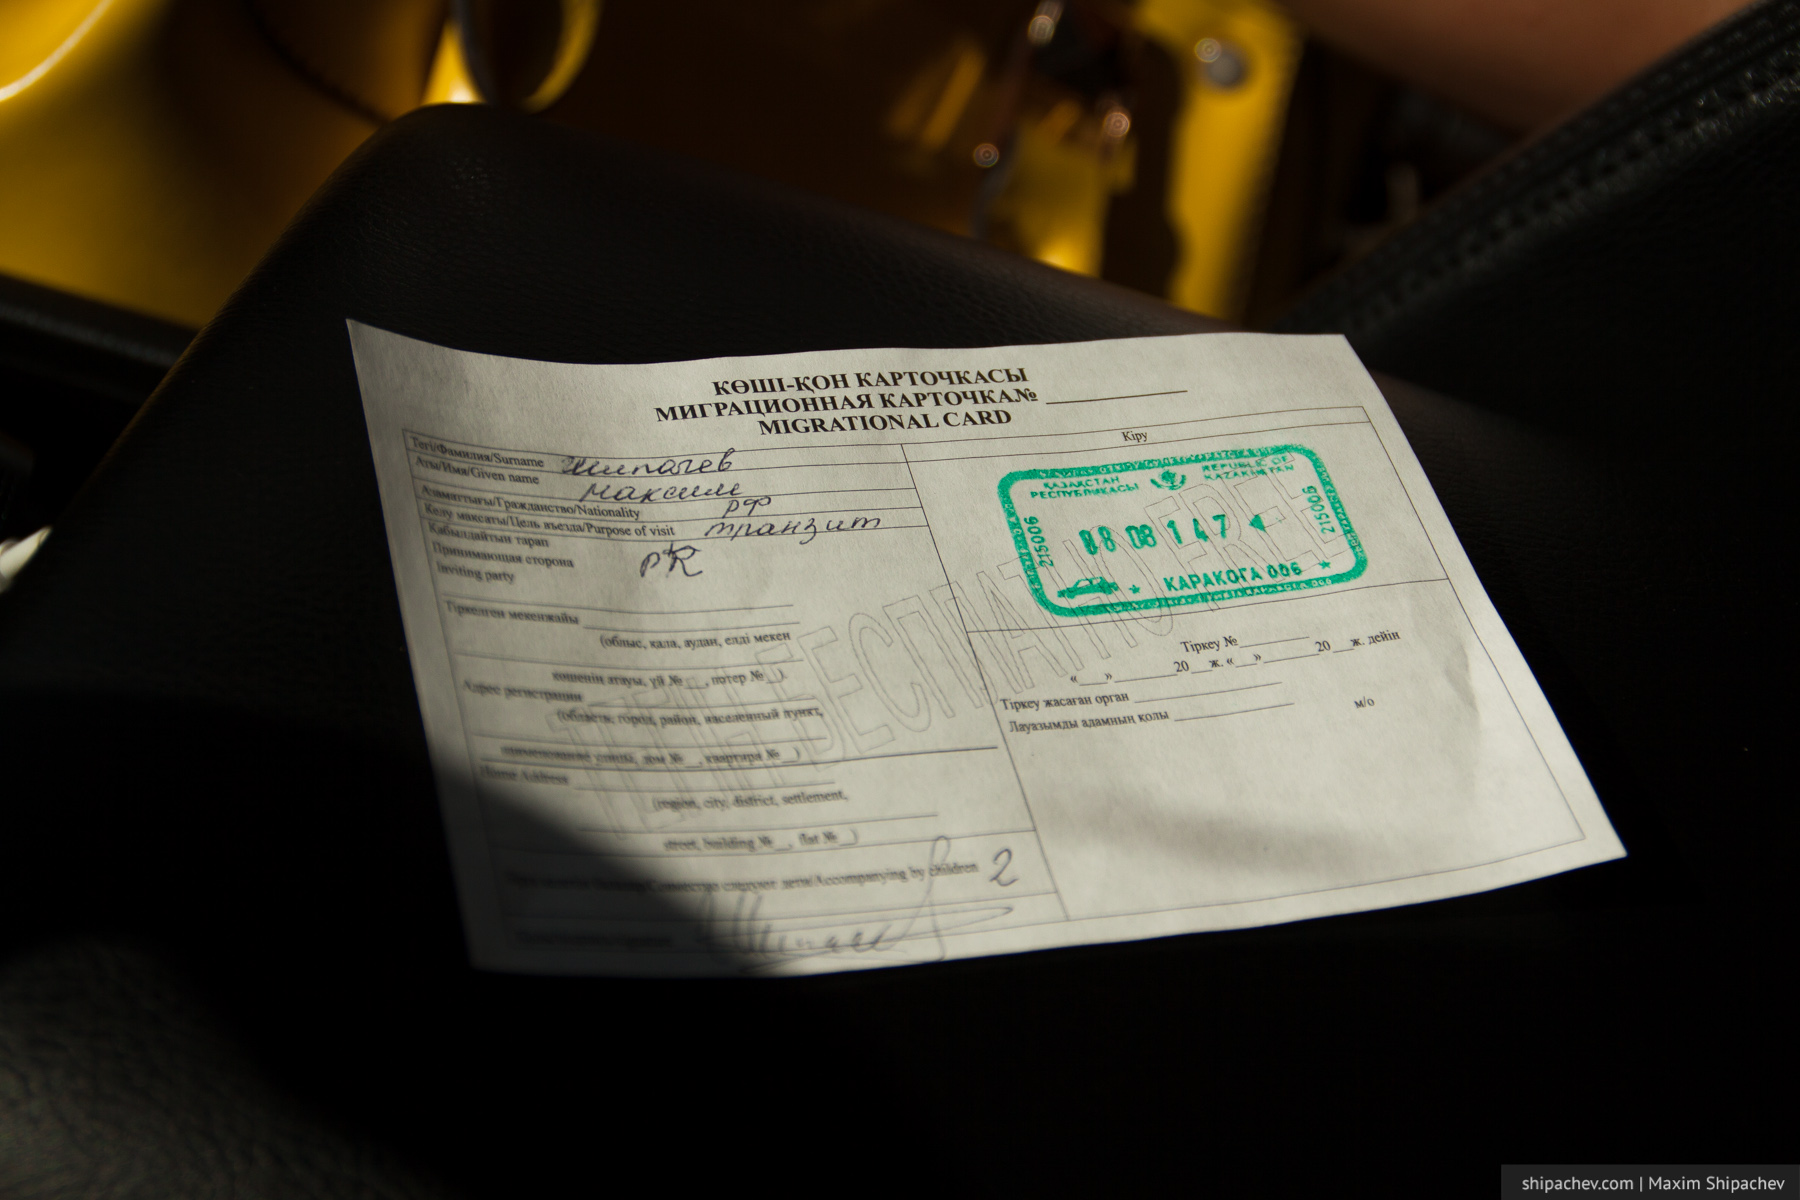 КӨШІ-ҚОН КАРТОЧКАСЫ
МИГРАЦИОННАЯ КАРТОЧКА№ ____________
MIGRATIONAL CARD
Тегі/Фамилия/Surname Шипачев
Аты/Имя/Given name Максим
Азаматтығы/Гражданство/Nationality РФ
Келу мақсаты/Цель въезда/Purpose of visit транзит
Қабылдайтын тарап
Принимающая сторона РК
Inviting party
Тіркелген мекенжайы
(облыс, қала, аудан, елді мекен
көшенің атауы, үй №__, пәтер №__).
Адрес регистрации
(область, город, район, населенный пункт,
наименование улицы, дом №__, квартира №__)
Home Address
(region, city, district, settlement,
street, building №__, flat №__)
Совместно следуют дети/Accompanying by children 2
Кіру
ҚАЗАҚСТАН РЕСПУБЛИКАСЫ
REPUBLIC OF KAZAKHSTAN
215006
08 08 14 7
215006
КАРАКОГА 006
ТЕГІН БЕСПЛАТНО FREE
Тіркеу № __________
«___» ________20___ж. «___» ________20___ж. дейін
Тіркеу жасаған орган
Лауазымды адамның қолы
м/о
shipachev.com | Maxim Shipachev